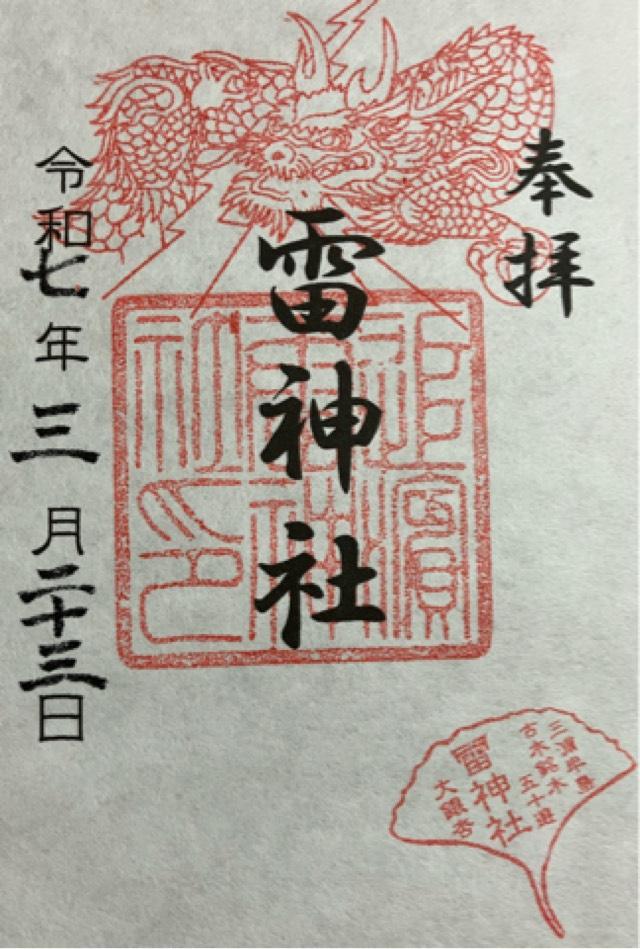 奉拝
雷神社
令和七年三月二十三日
追濱
雷神
社印
三浦半島
古木銘木
五十選
雷神社
大銀杏